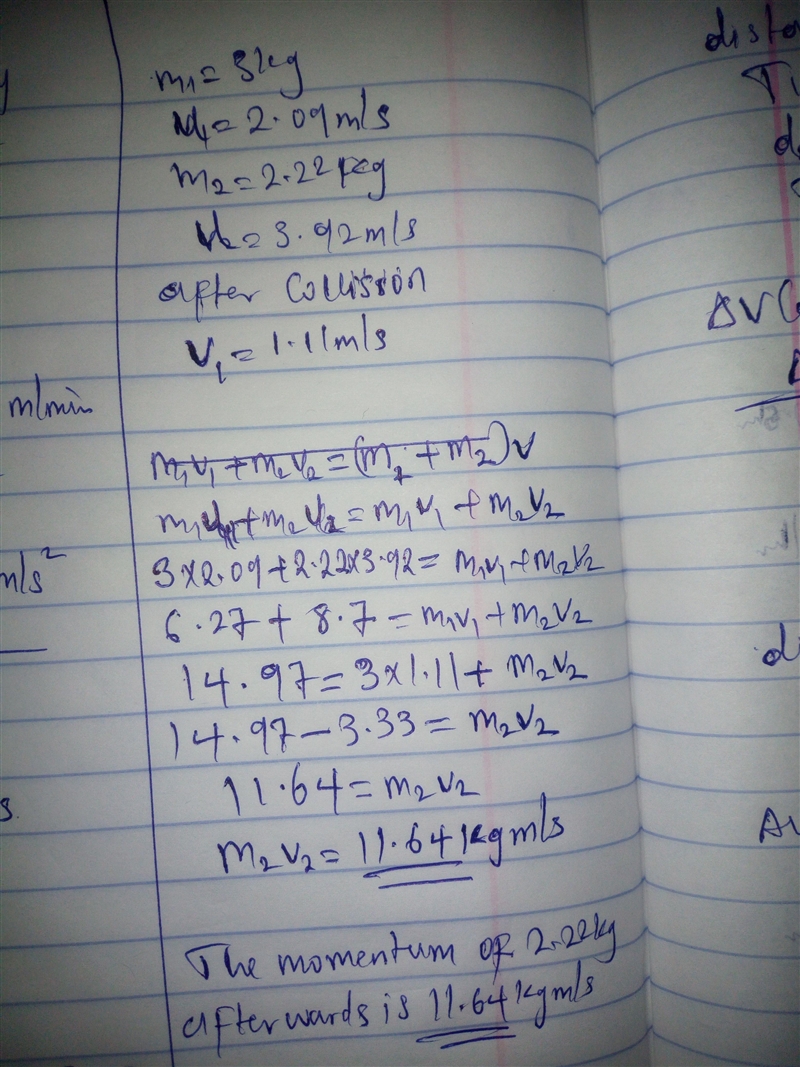 m₁ = 3kg
u₁ = 2.09m/s
m₂ = 2.22kg
u₂ = 3.92m/s
after Collision
V₁ = 1.11m/s
m/min
m₁v₁ + m₂v₂ = (m₁ + m₂)v
m₁u₁ + m₂u₂ = m₁v₁ + m₂v₂
m/s²
3×2.09 + 2.22×3.92 = m₁v₁ + m₂v₂
6.27 + 8.7 = m₁v₁ + m₂v₂
14.97 = 3×1.11 + m₂v₂
14.97 – 3.33 = m₂v₂
11.64 = m₂v₂
m₂v₂ = 11.64kgm/s
The momentum of 2.22kg
afterwards is 11.64kgm/s